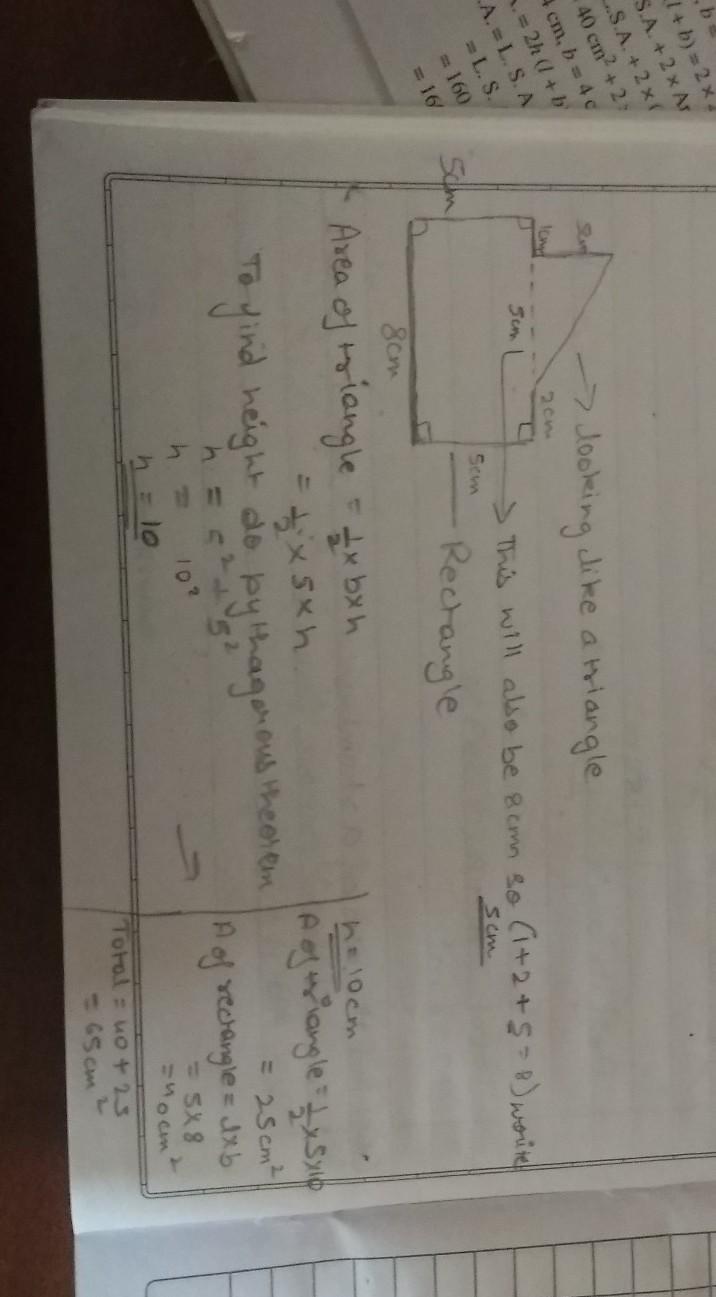 b =
l + b) = 2 ×
S.A. + 2 × Ar
.S.A. + 2 × (
40 cm² + 2
cm, b = 4 c
. = 2h (l + b
.A. = L. S. A
= L. S.
= 160
= 16
→ looking like a triangle
1cm 2cm
5cm → This will also be 8cm so (1+2+5=8) write
5cm
5cm 5cm — Rectangle
8cm
Area of triangle = ½ x b x h
= ½ x 5 x h
To find height do pythagorous theorem
h = 5² + 5²
h = 10²
h = 10
→
h = 10cm
A of triangle = ½ x 5 x 10
= 25 cm²
A of rectangle = l x b
= 5 x 8
= 40 cm²
Total = 40 + 25
= 65 cm²